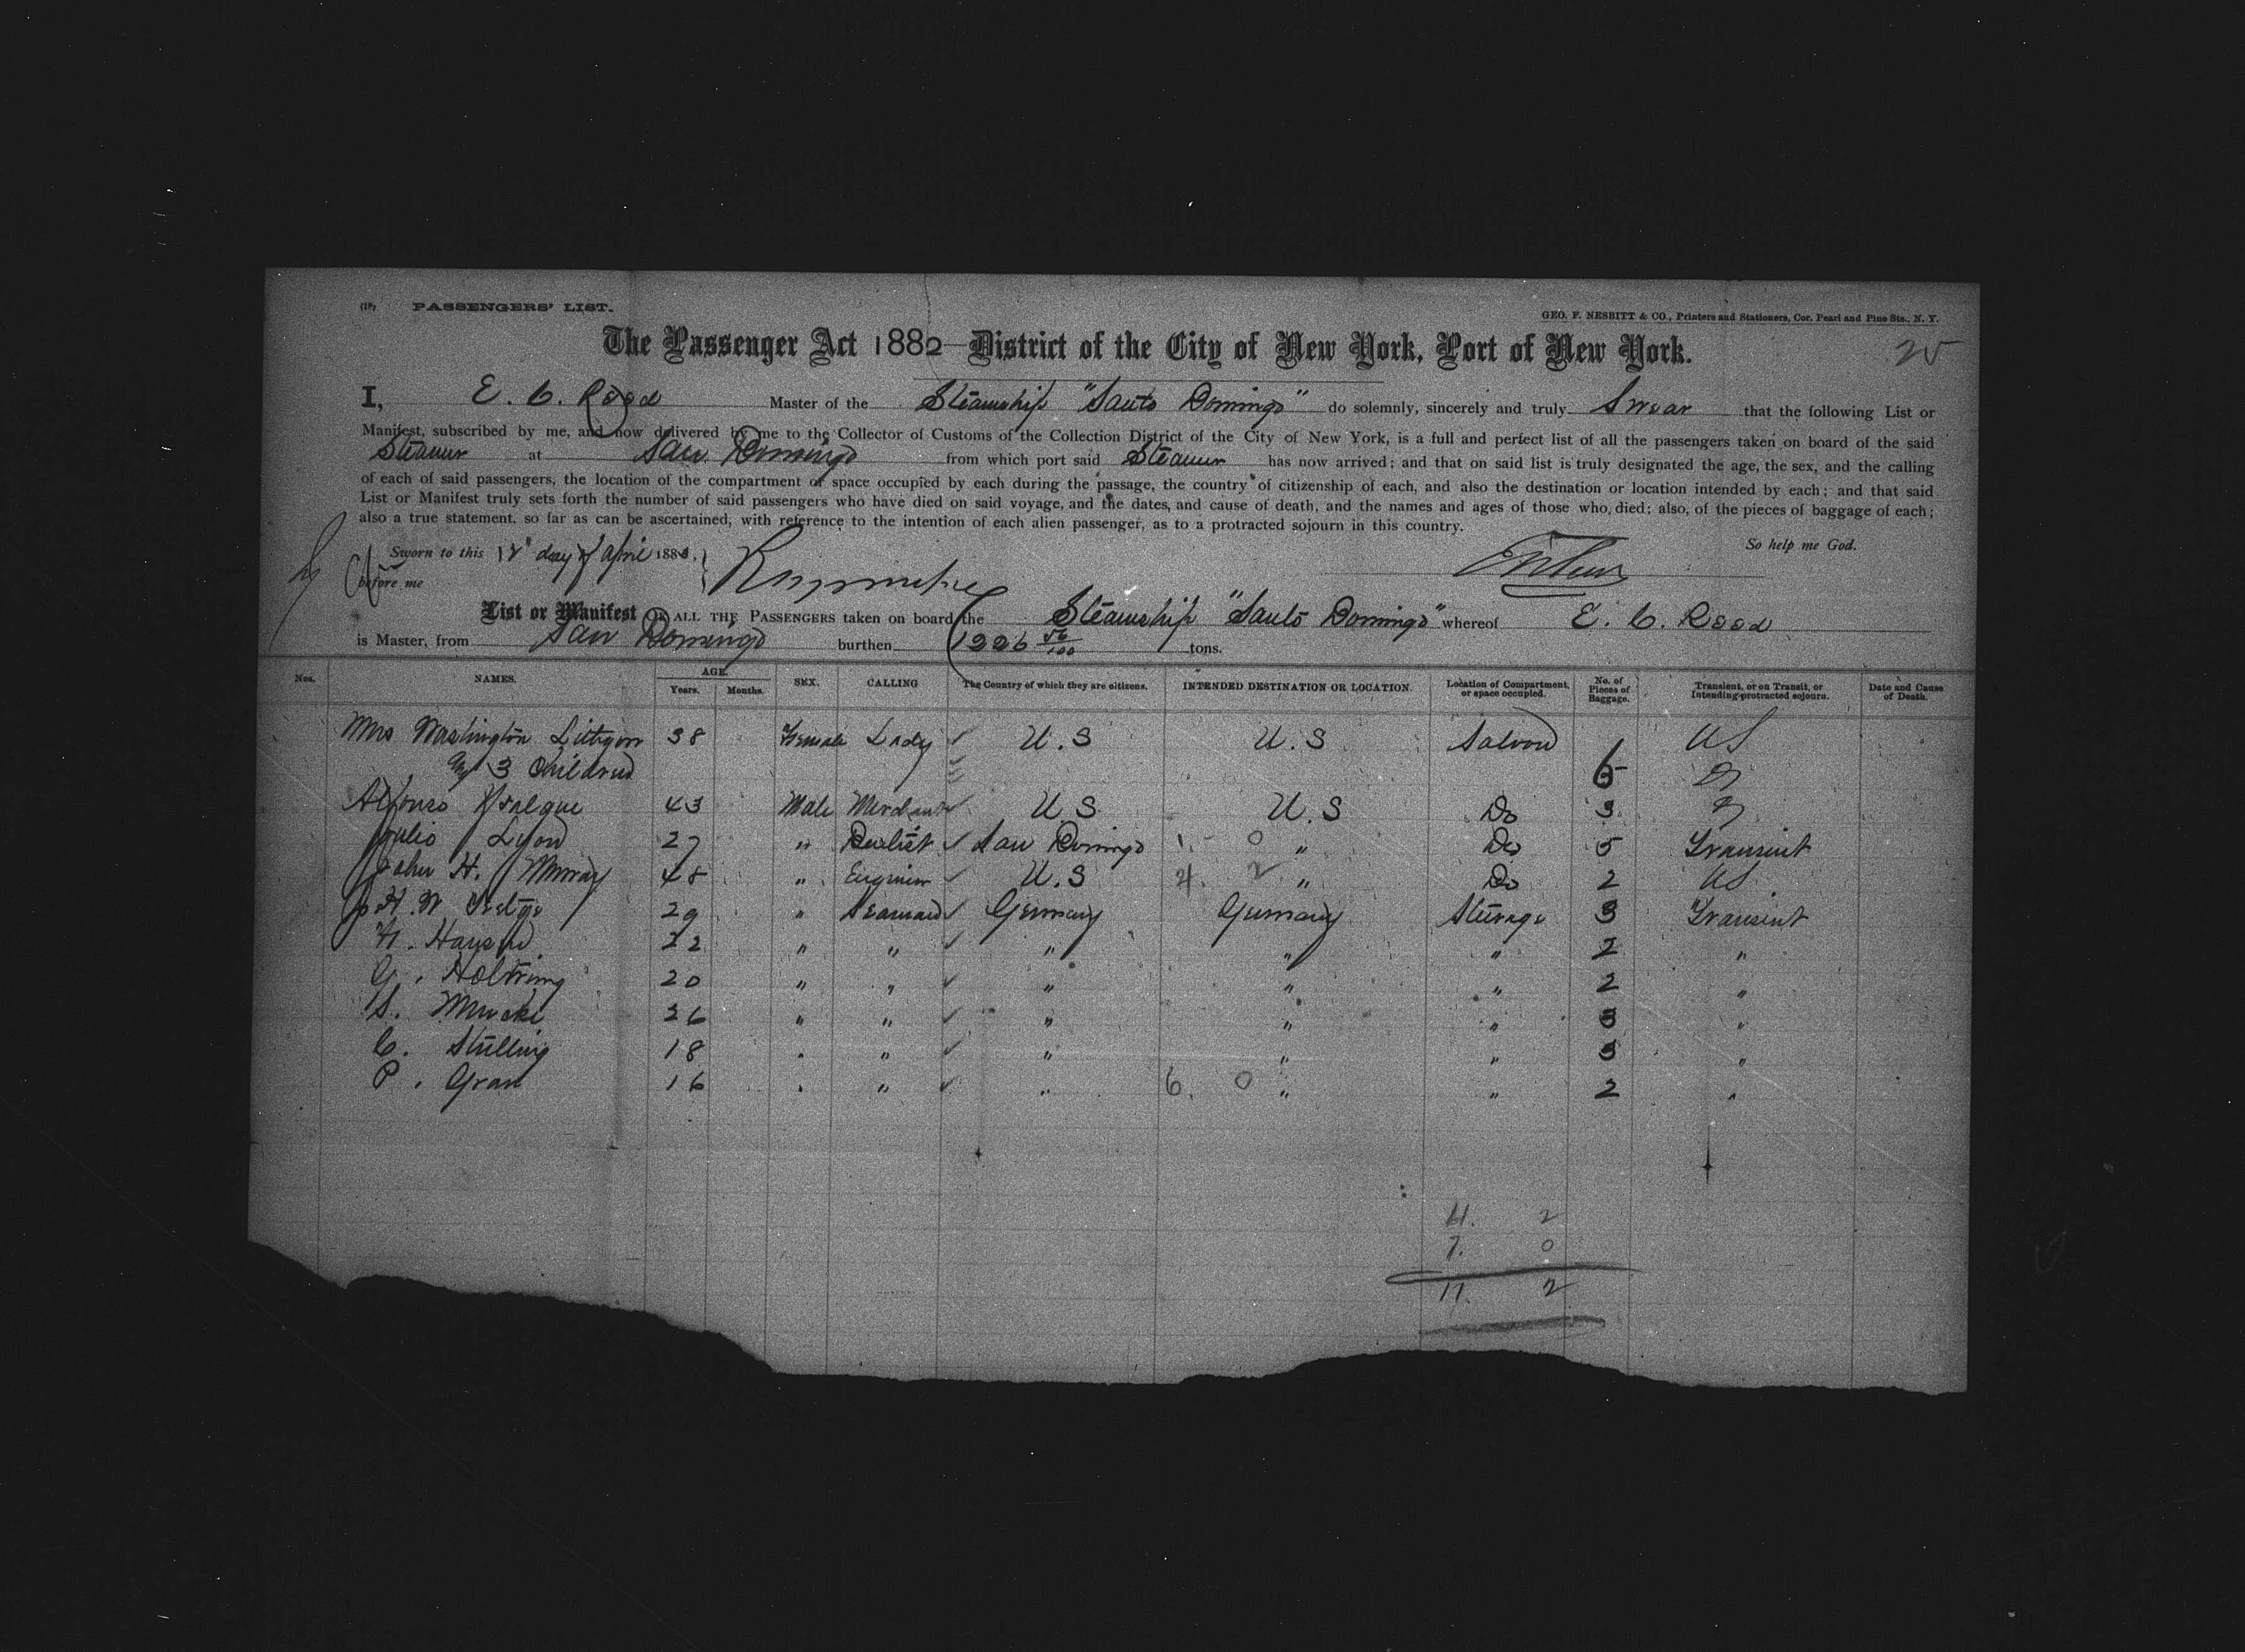 (18) PASSENGERS' LIST.
GEO. F. NESBITT & CO., Printers and Stationers, Cor. Pearl and Pine Sts., N. Y.
The Passenger Act 1882—District of the City of New York, Port of New York.
25
I, E. C. Reed Master of the Steamship "Santo Domingo" do solemnly, sincerely and truly Swear that the following List or
Manifest, subscribed by me, and now delivered by me to the Collector of Customs of the Collection District of the City of New York, is a full and perfect list of all the passengers taken on board of the said
Steamer at San Domingo from which port said Steamer has now arrived; and that on said list is truly designated the age, the sex, and the calling
of each of said passengers, the location of the compartment or space occupied by each during the passage, the country of citizenship of each, and also the destination or location intended by each; and that said
List or Manifest truly sets forth the number of said passengers who have died on said voyage, and the dates, and cause of death, and the names and ages of those who died; also, of the pieces of baggage of each;
also a true statement, so far as can be ascertained, with reference to the intention of each alien passenger, as to a protracted sojourn in this country.
So help me God.
Sworn to this day of April 188
before me
List or Manifest OF ALL THE PASSENGERS taken on board the Steamship "Santo Domingo" whereof E. C. Reed
is Master, from San Domingo burthen 1226 56/100 tons.
Nos. NAMES. AGE. Years. Months. SEX. CALLING The Country of which they are citizens. INTENDED DESTINATION OR LOCATION. Location of Compartment, or space occupied. No. of Pieces of Baggage. Transient, or on Transit, or Intending protracted sojourn. Date and Cause of Death.
Mrs Washington 38 Female Lady U.S U.S Saloon US
3 Children 6
Alfonso 43 Male Merchant U.S U.S Do 3
Julio Lyon 27 " San Domingo 1. 0 " Do 5 Transient
John H. Murray 48 " Engineer U.S 4. 2 " Do 2 US
H. W. 29 " Seaman Germany Germany Steerage 3 Transient
H. Hansen 22 " " " " " 2 "
G. 20 " " " " " 2 "
S. 26 " " " " " 3 "
C. Stulling 18 " " " " " 3 "
P. Gran 16 " " " 6. 0 " " 2 "
4. 2
7. 0
11. 2